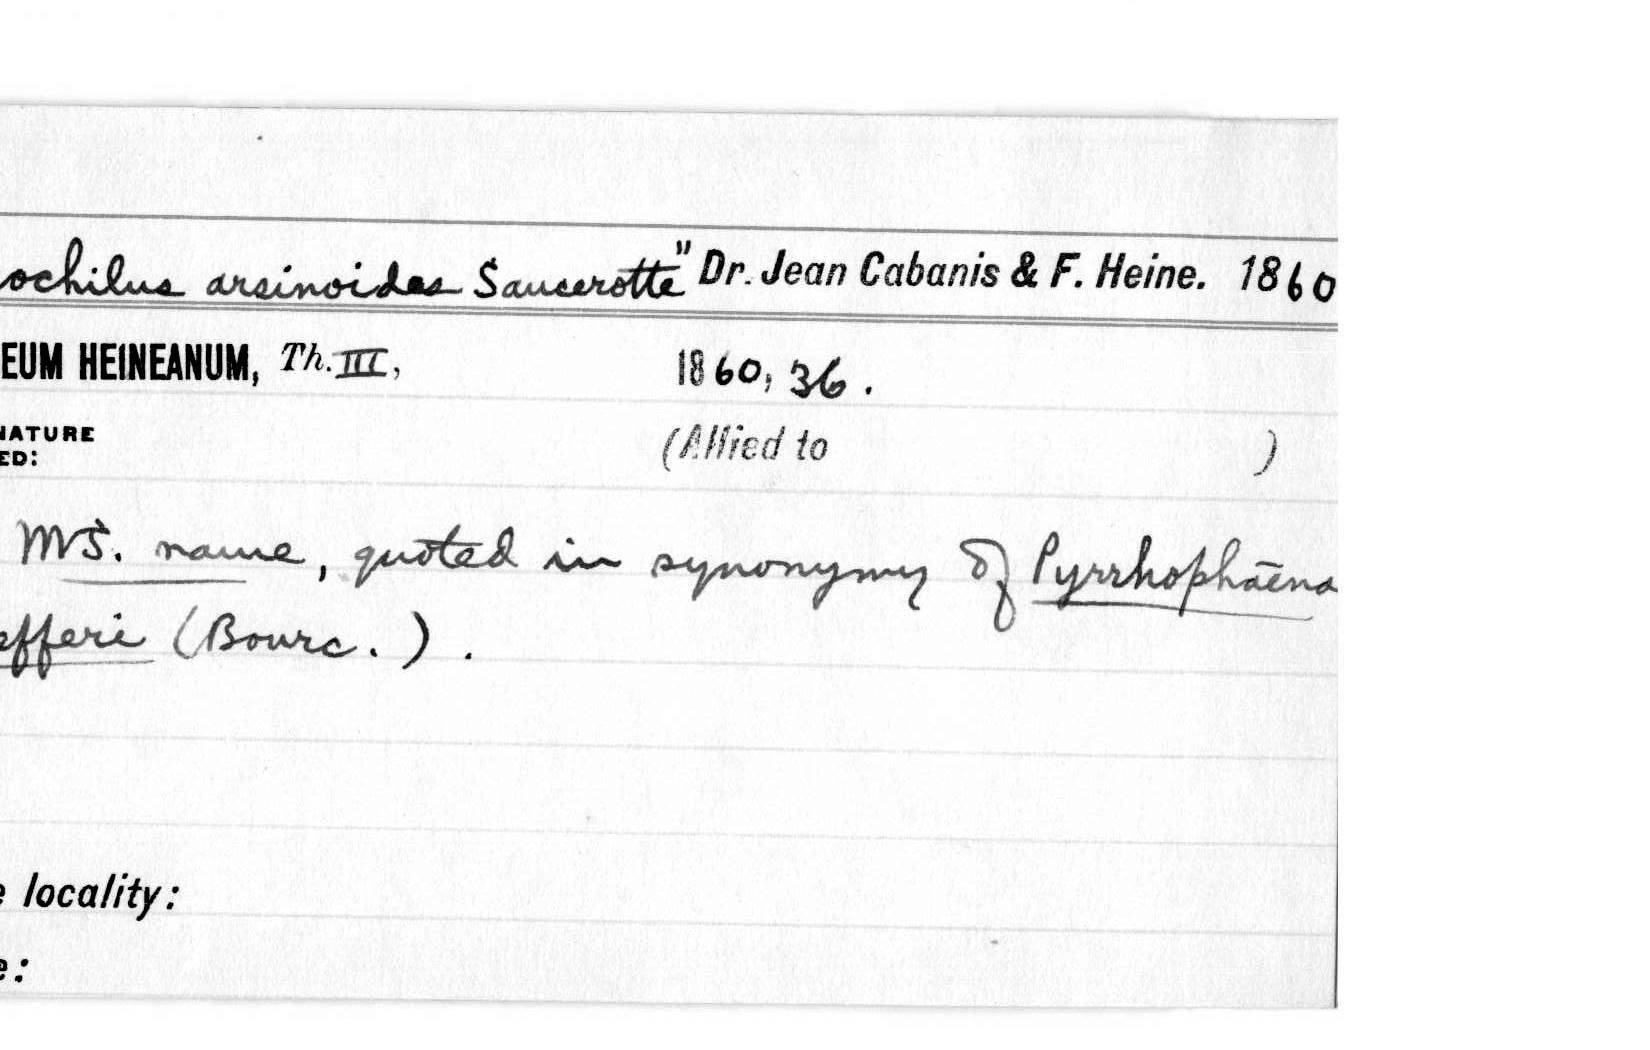 ochilus arsinoides Saucerotte" Dr. Jean Cabanis & F. Heine. 1860
EUM HEINEANUM, Th. III, 1860, 36.
NATURE
ED: (Allied to )
MS. name, quoted in synonymy of Pyrrhophaena
efferi (Bourc.).
e locality:
e: